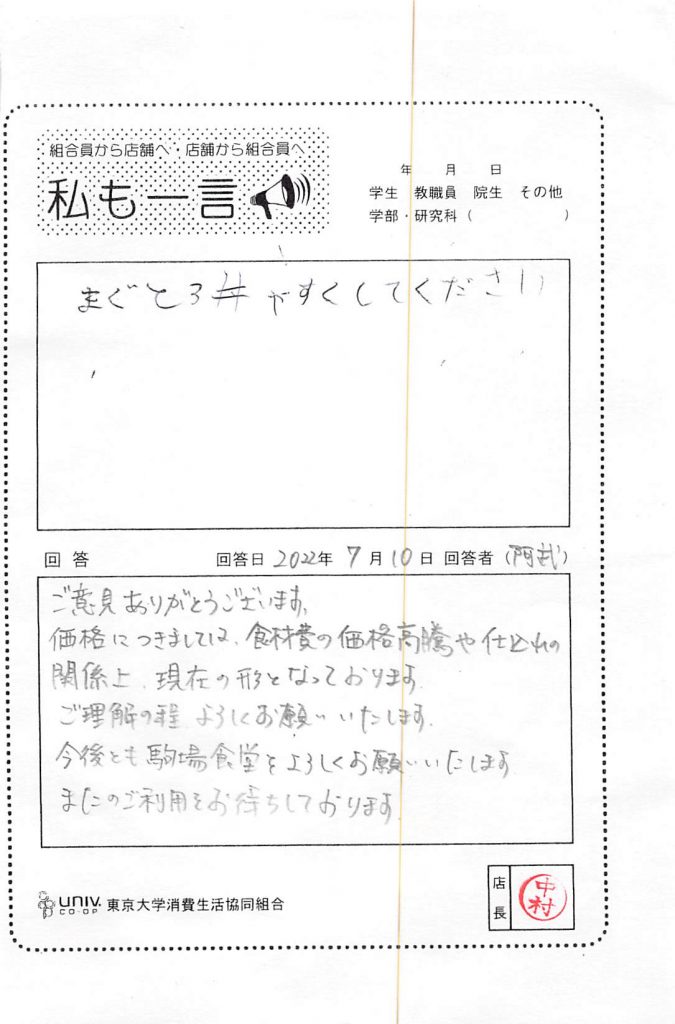 組合員から店舗へ・店舗から組合員へ
私も一言
年 月 日
学生 教職員 院生 その他
学部・研究科( )
まぐとろ丼 やすくしてください
回答 回答日 2022年 7月10日 回答者(阿武)
ご意見ありがとうございます。
価格につきましては、食材費の価格高騰や仕込れの
関係上、現在の形となっております。
ご理解の程、よろしくお願いいたします。
今後とも駒場食堂をよろしくお願いいたします
またのご利用をお待ちしております
UNIV. CO-OP 東京大学消費生活協同組合
店長 中村